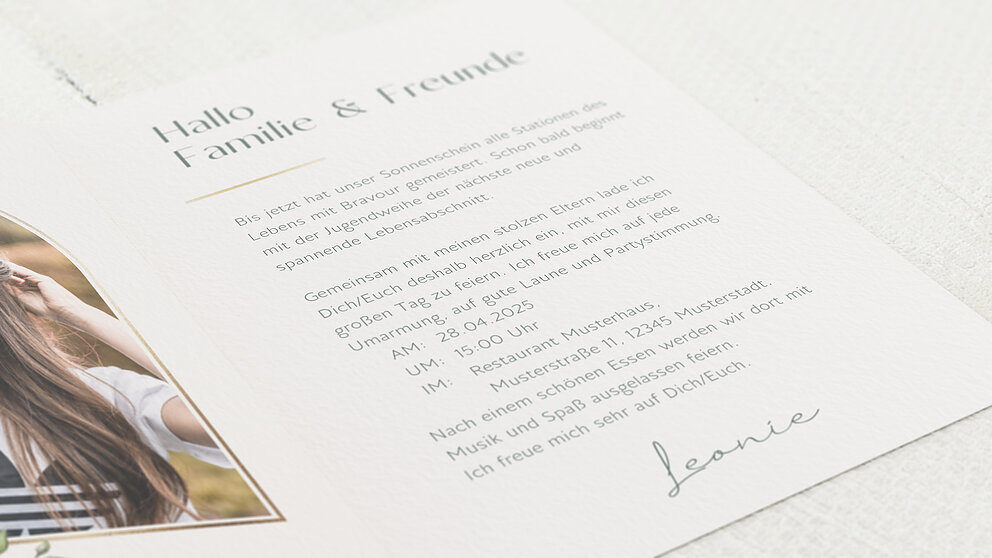 Hallo
Familie & Freunde
Bis jetzt hat unser Sonnenschein alle Stationen des
Lebens mit Bravour gemeistert. Schon bald beginnt
mit der Jugendweihe der nächste neue und
spannende Lebensabschnitt.
Gemeinsam mit meinen stolzen Eltern lade ich
Dich/Euch deshalb herzlich ein, mit mir diesen
großen Tag zu feiern. Ich freue mich auf jede
Umarmung, auf gute Laune und Partystimmung.
AM: 28.04.2025
UM: 15:00 Uhr
IM: Restaurant Musterhaus,
Musterstraße 11, 12345 Musterstadt.
Nach einem schönen Essen werden wir dort mit
Musik und Spaß ausgelassen feiern.
Ich freue mich sehr auf Dich/Euch.
Leonie